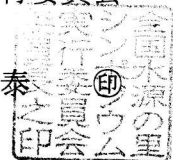 泰 ㊞
全国水源の里
シンポジウム
実行委員会
之印